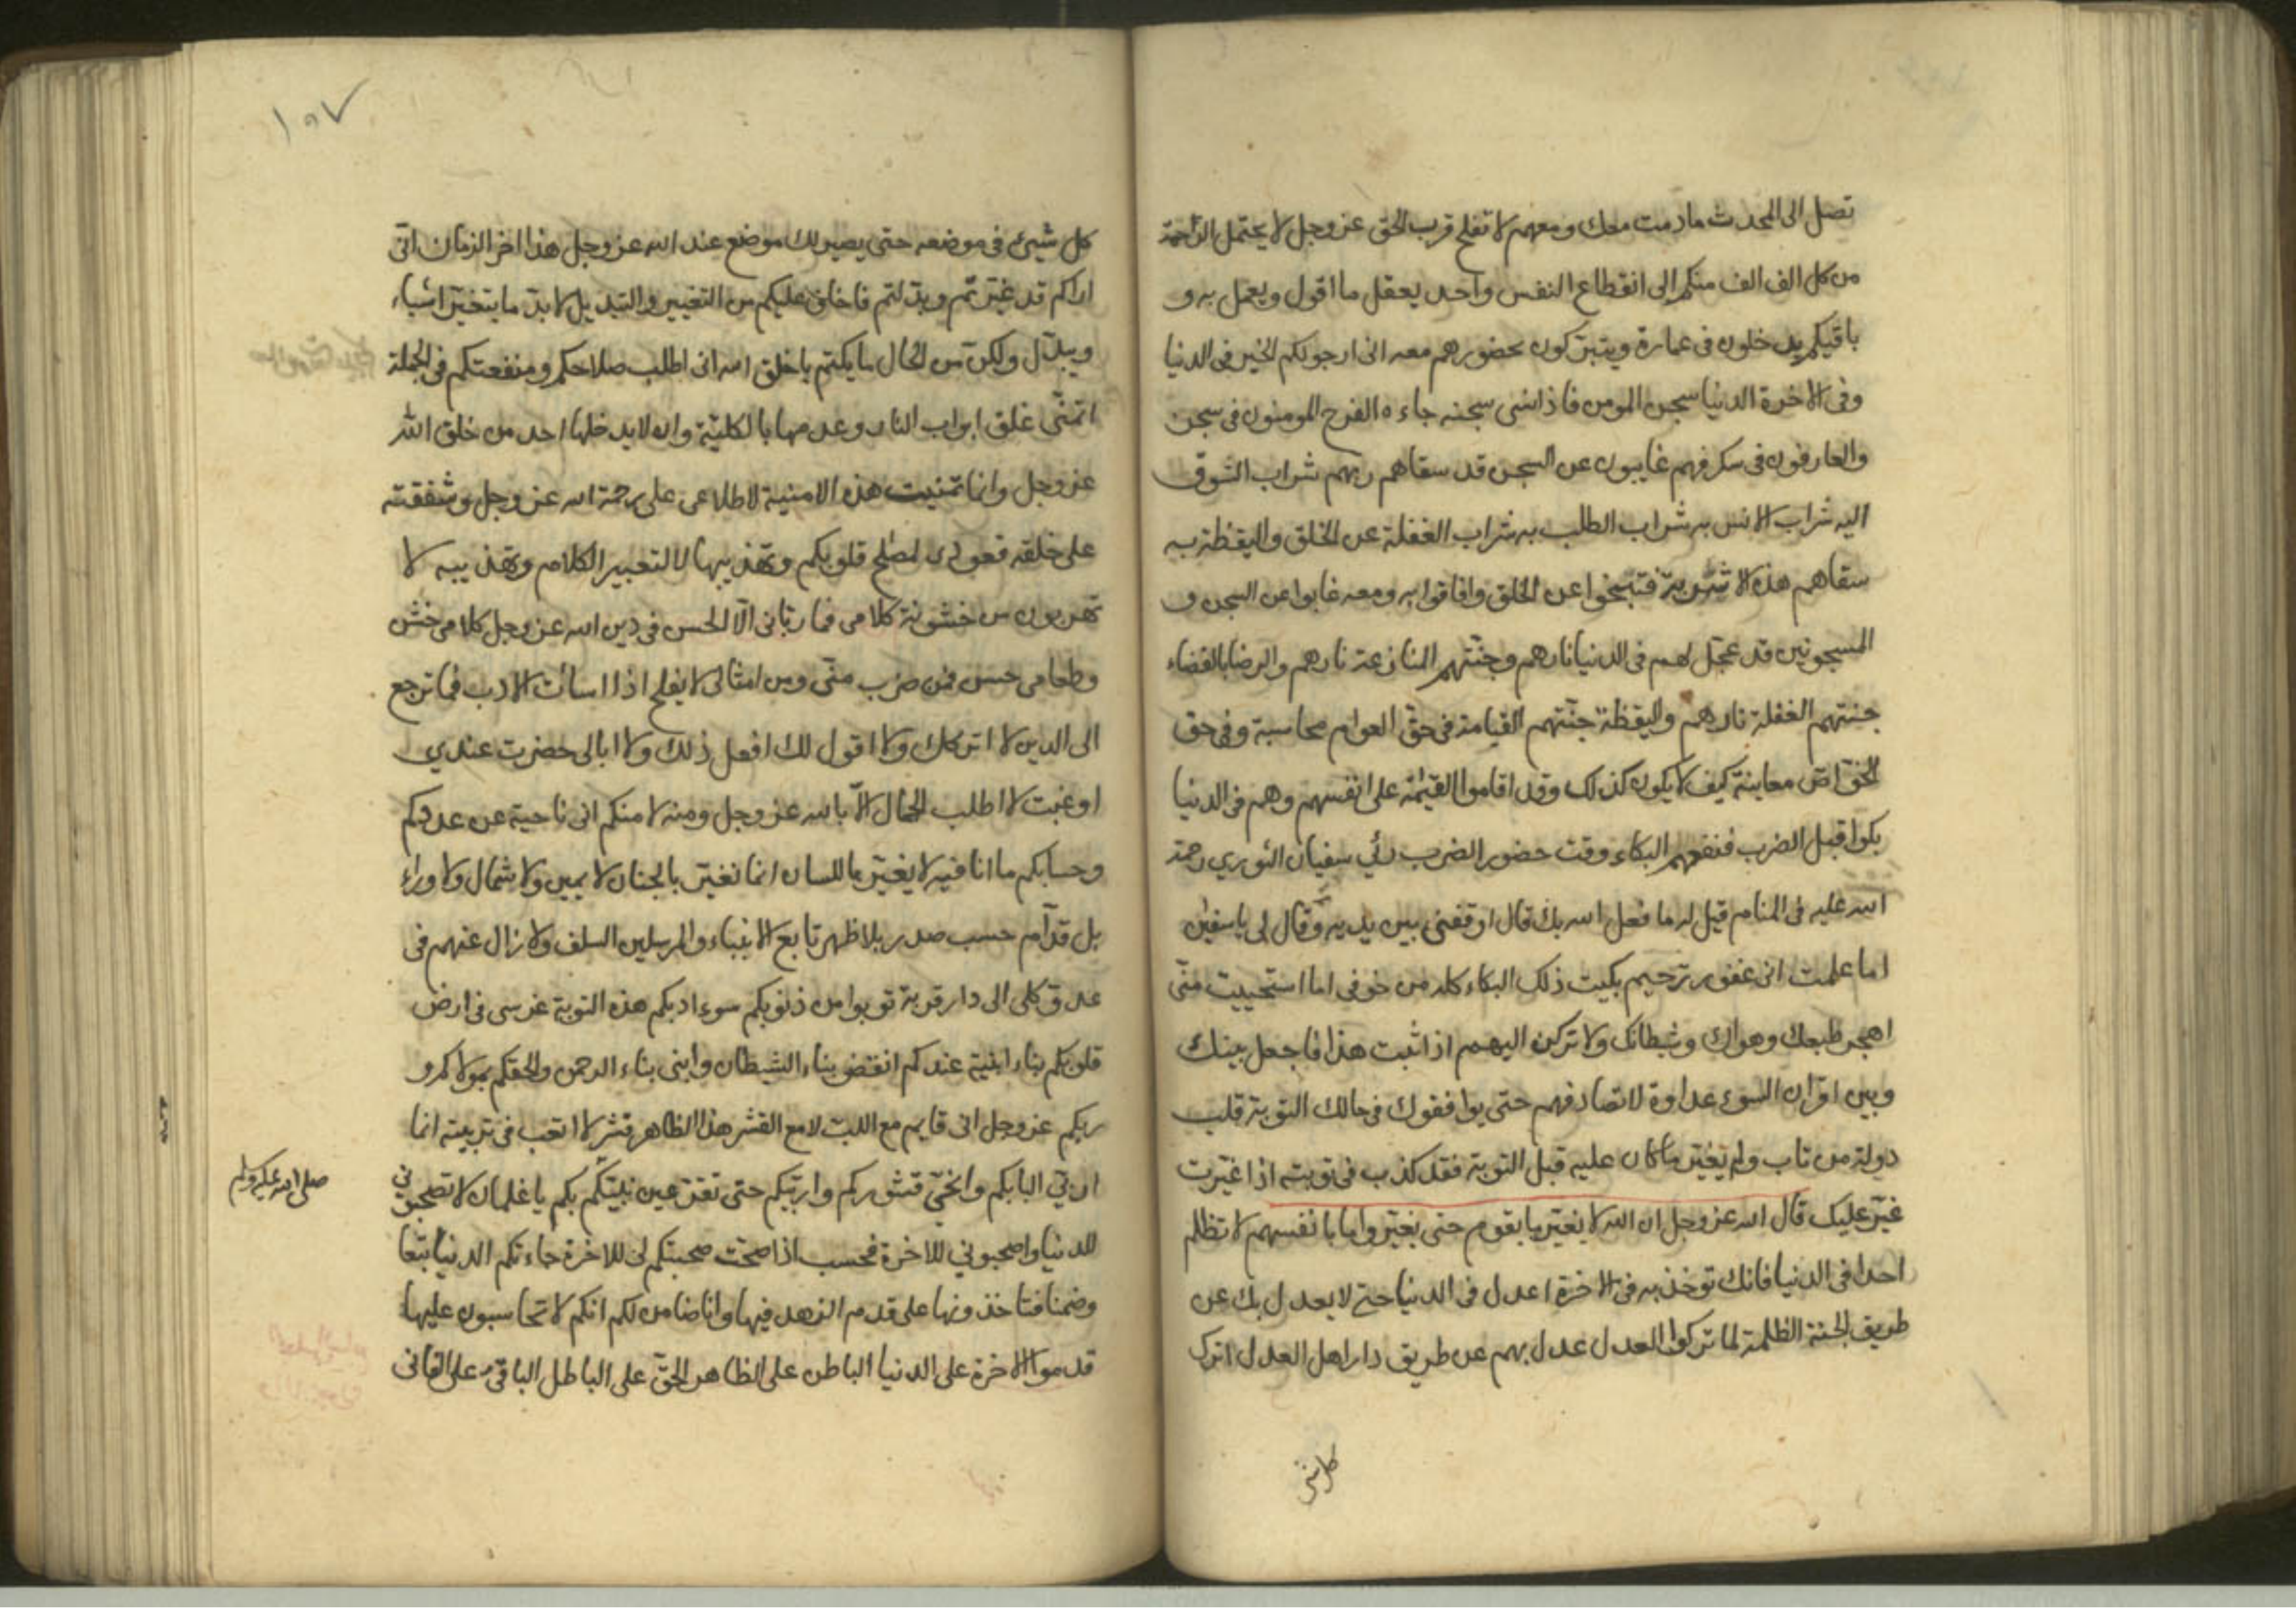 تصل الى المحدث مادمت معك ومعهم لا تفلح قرب الحق عز وجل لا يحتمل الزاحمة
من كل الف الف منكم الى انقطاع النفس واحد يعقل ما اقول ويعمل به و
باقيكم يدخلون فى عمارة ويتبركون بحضورهم معه انى ارجو لكم الخير فى الدنيا
وفى الاخرة الدنيا سجن المومن فاذا نسى سجنه جاءه الفرح المومنون فى سجن
والعارفون فى سكر فهم غايبون عن السجن قد سقاهم ربهم شراب الشوق
اليه شراب الانس به شراب الطلب به شراب الغفلة عن الخلق واليقظة به
سقاهم هذه الاشربة فتبنجوا عن الخلق وافاقوا به ومعه غابوا عن السجن و
المسجونين قد عجل لهم فى الدنيا نارهم وجنتهم المنازعة نارهم والرضا بالقضاء
جنتهم الغفلة نارهم واليقظة جنتهم القيامة فى حق العوام محاسبة وفى حق
الخواص معاينة كيف لا يكون كذلك وقد اقاموا القيمة على انفسهم وهم فى الدنيا
بكوا قبل الضرب فنفعهم البكاء وقت حضور الضرب رئي سفيان الثوري رحمة
الله عليه فى المنام قيل له ما فعل الله بك قال اوقفنى بين يديه وقال لى يا سفين
اما علمت انى غفور رحيم بكيت ذلك البكاء كله من خوفى اما استحييت منى
اهجر طبعك وهواك وشيطانك ولا تركن اليهم اذا ثبت هذا فاجعل بينك
وبين اقران السوء عداوة لا تصادفهم حتى يوافقوك فى حالك التوبة قلب
دولة من تاب ولم يغير ما كان عليه قبل التوبة فقد كذب فى توبته اذا غيرت
غير عليك قال الله عز وجل ان الله لا يغير ما بقوم حتى يغيروا ما بانفسهم لا تظلم
احدا فى الدنيا فانك توخذ به فى الاخرة اعدل فى الدنيا حتى لا يعدل بك عن
طريق الجنة الظلمة لما تركوا العدل عدل بهم عن طريق دار اهل العدل اترك
كل شى
١٥٧
كل شيئ فى موضعه حتى يصير لك موضع عند الله عز وجل هذا اخر الزمان انى
اراكم قد غيرتم وبدلتم فاخاف عليكم من التغيير والتبديل لا بد ما يتغير اشياء
ويبدل ولكن من الحال ما يكتم يا خلق الله انى اطلب صلاحكم ومنفعتكم فى الجملة
اتمنى غلق ابواب النار وعدمها بالكلية وان لا يدخلها احد من خلق الله
عز وجل وانما تمنيت هذه الامنية لاطلاعى على رحمة الله عز وجل وشفقته
على خلقه قعودى لمصلح قلوبكم وتهذيبها لا لتعبير الكلام وتهذيبه لا
تهربون من خشونة كلامى فما ربانى الا الخشن فى دين الله عز وجل كلامى خشن
وطعامى خشن فمن هرب منى ومن امثالى لا يفلح اذا اسأت الادب فما ترجع
الى الدين لا اتركك ولا اقول لك افعل ذلك ولا ابالى حضرت عندي
او غبت لا اطلب الحال الا بالله عز وجل ومنه لا منكم انى ناحية عن عددكم
وحسابكم ما انا فيه لا يغير باللسان انما تغير بالجنان لا يمين ولا شمال ولا وراء
بل قدام حسب صدر بلا ظهر تابع الانبياء والمرسلين السلف ولا زال عنهم فى
عدوى كلى الى دار قربة توبوا من ذنوبكم سوء ادبكم هذه التوبة غرسى فى ارض
قلوبكم بناء ابنية عندكم انقض بناء الشيطان وابنى بناء الرحمن والحقكم بمولاكم و
ربكم عز وجل انى قايم مع اللب لا مع القشر هذا الظاهر قشر لا اتعب فى تربيته انما
اربي البابكم وانخى قشوركم واربيكم حتى تقر عين نبيكم بكم يا غلمان لا تصحبوني
صلى الله عليه وسلم
للدنيا واصحبوني للاخرة فحسب اذا صحت صحبتكم لى للاخرة جاءتكم الدنيا تبعا
وضمنا فتاخذونها على قدم الزهد فيها وانا ضامن لكم انكم لا تحاسبون عليها
قدموا الاخرة على الدنيا الباطن على الظاهر الحق على الباطل الباقى على الفانى